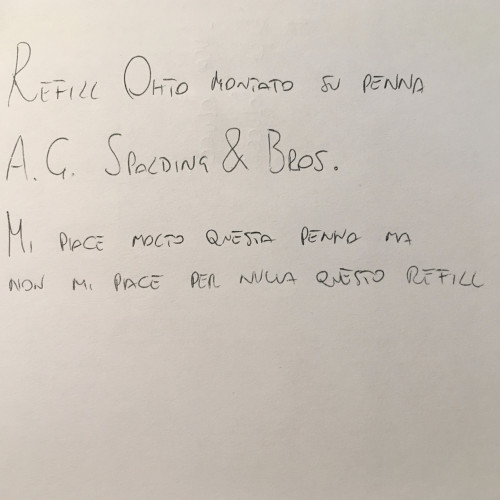 Refill Ohto montato su penna
A.G. Spalding & Bros.
Mi piace molto questa penna ma
non mi piace per nulla questo refill